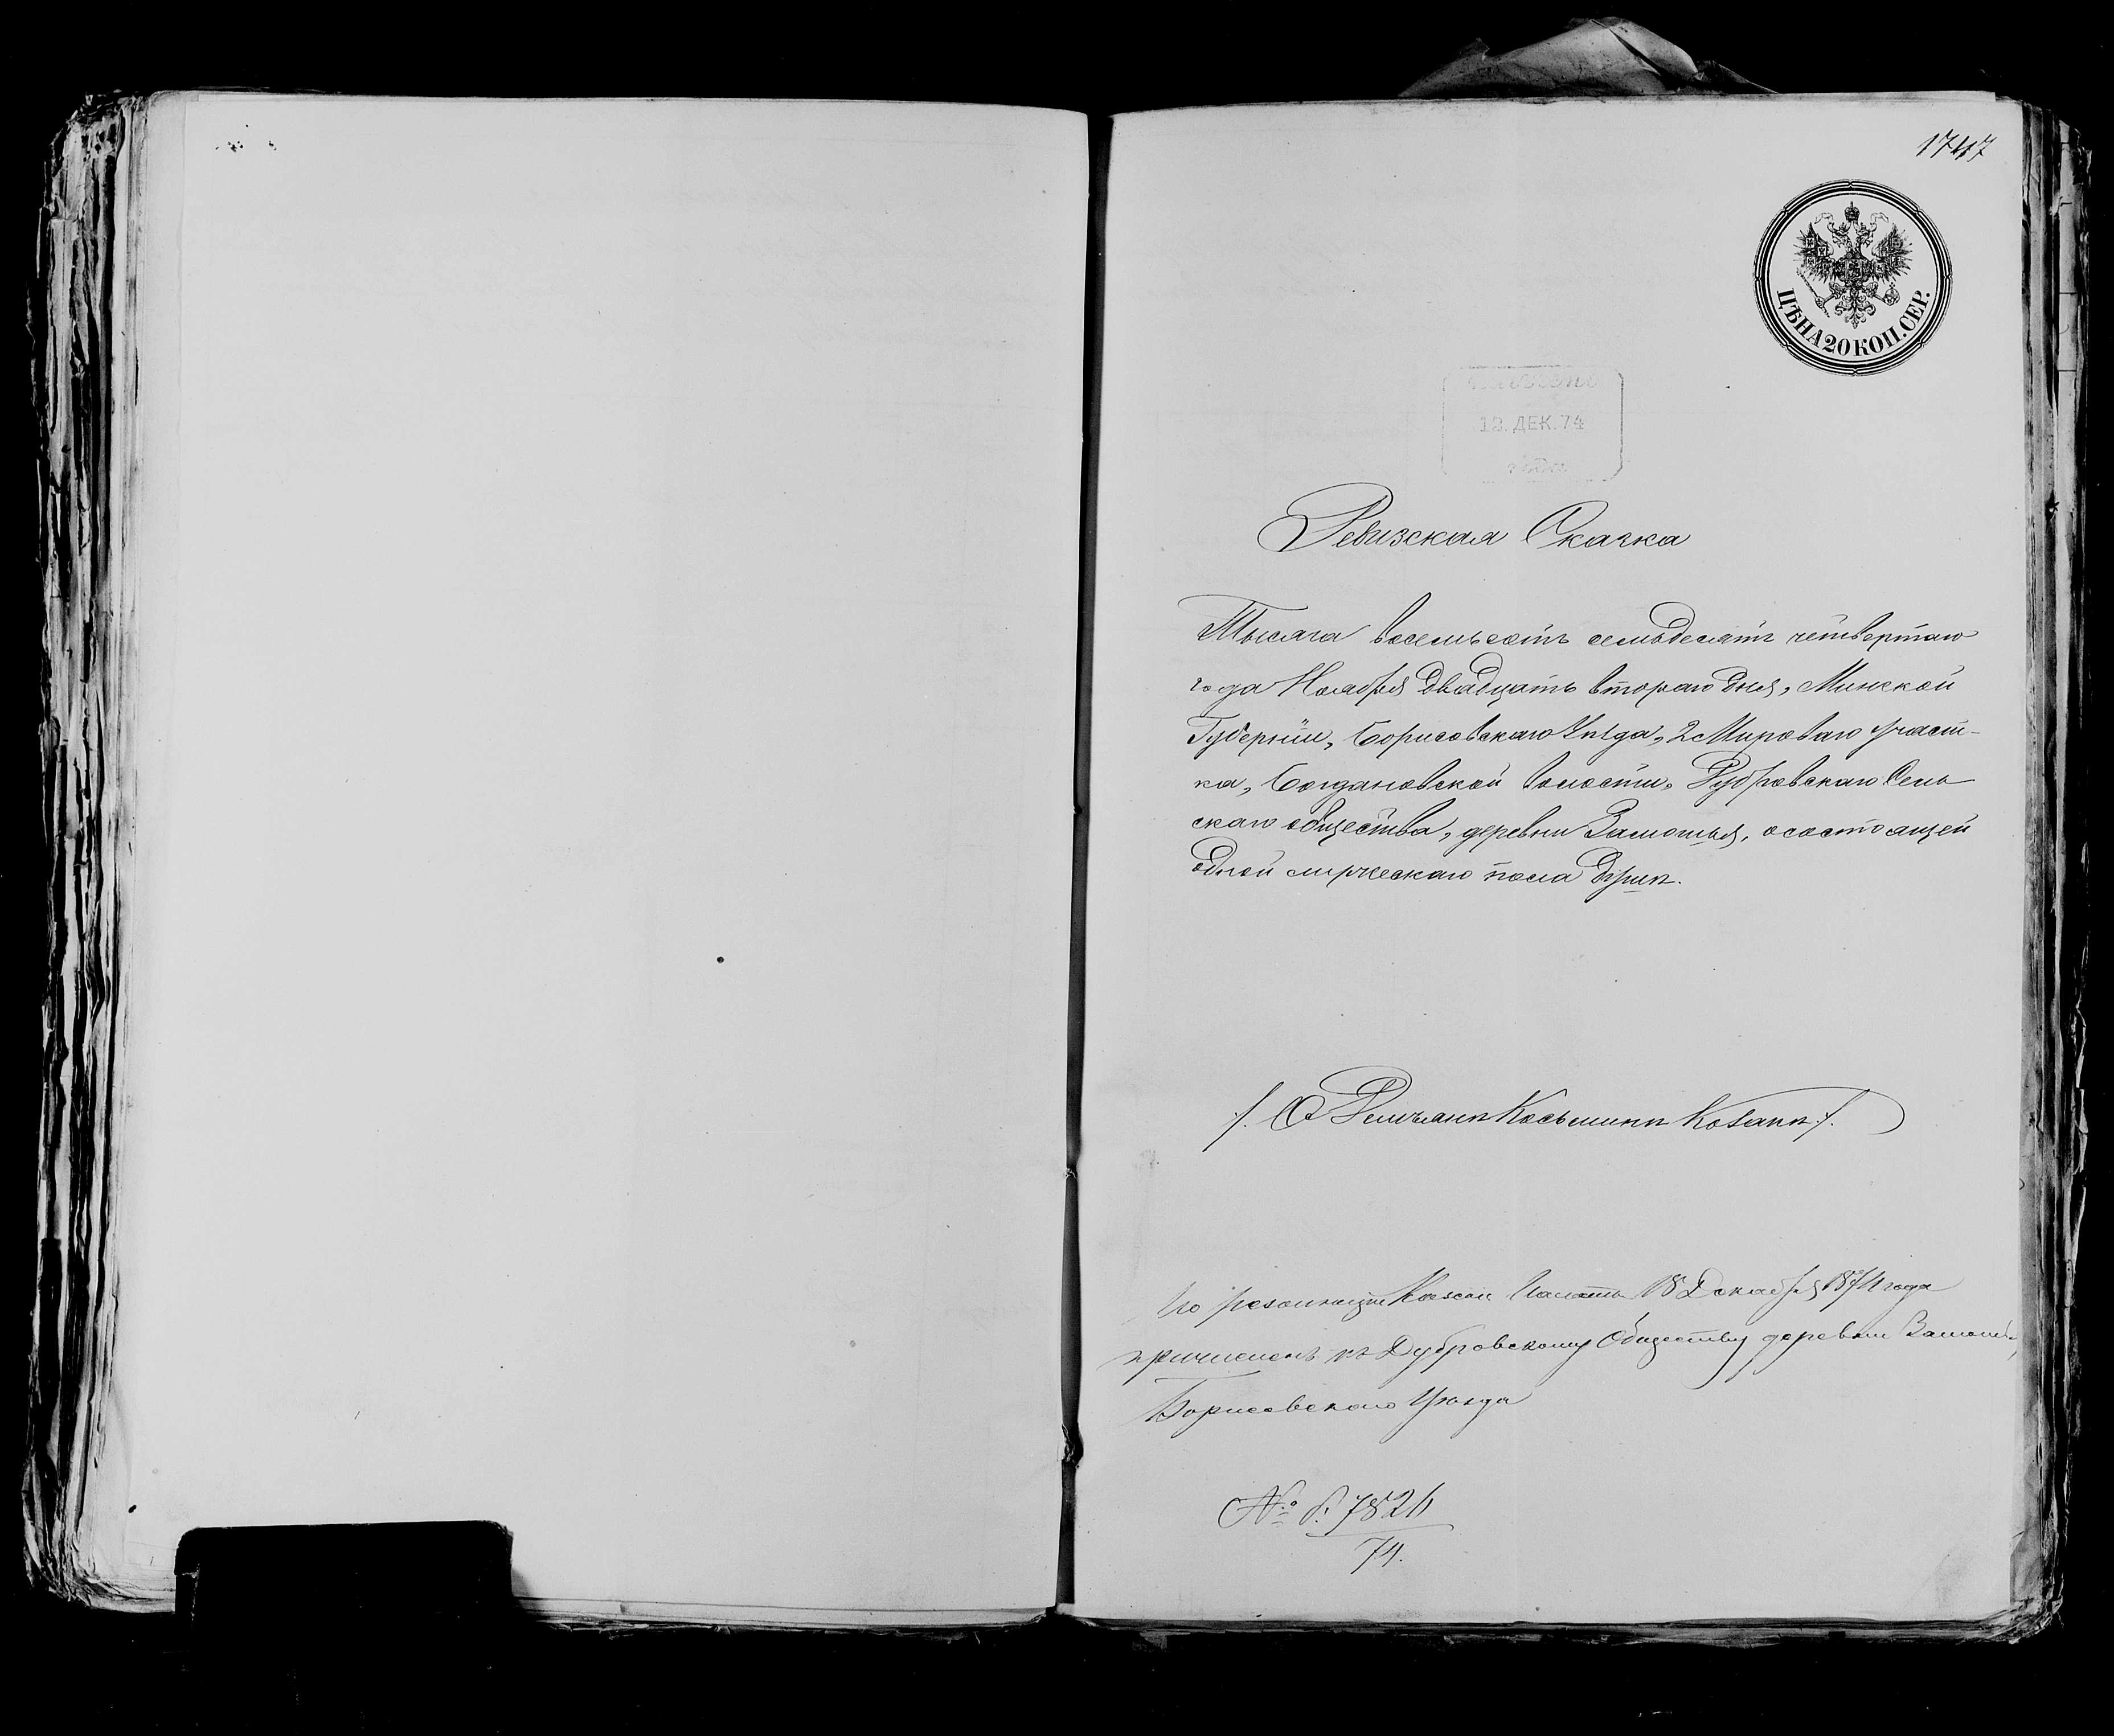 1747
ЦѢНА 20 КОП. СЕР.
12. ДЕК. 74
Ревизская Скаска
Тысяча восемьсотъ семьдесятъ четвертаго
года Ноября двадцать втораго дня, Минской
Губерніи, Борисовскаго Уѣзда, 2 Мироваго участ-
ка, Богдановской волости, Дубровскаго Сель
скаго общества, деревни Замошья, о состоящей
одной мужескаго пола душѣ.
/. О Косьминѣ ./.
По резолюціи Казен Палаты 18 Декабря 1874 года
причисленъ къ Дубровскому Обществу деревни
Борисовскаго Уѣзда
№ 7824
74.